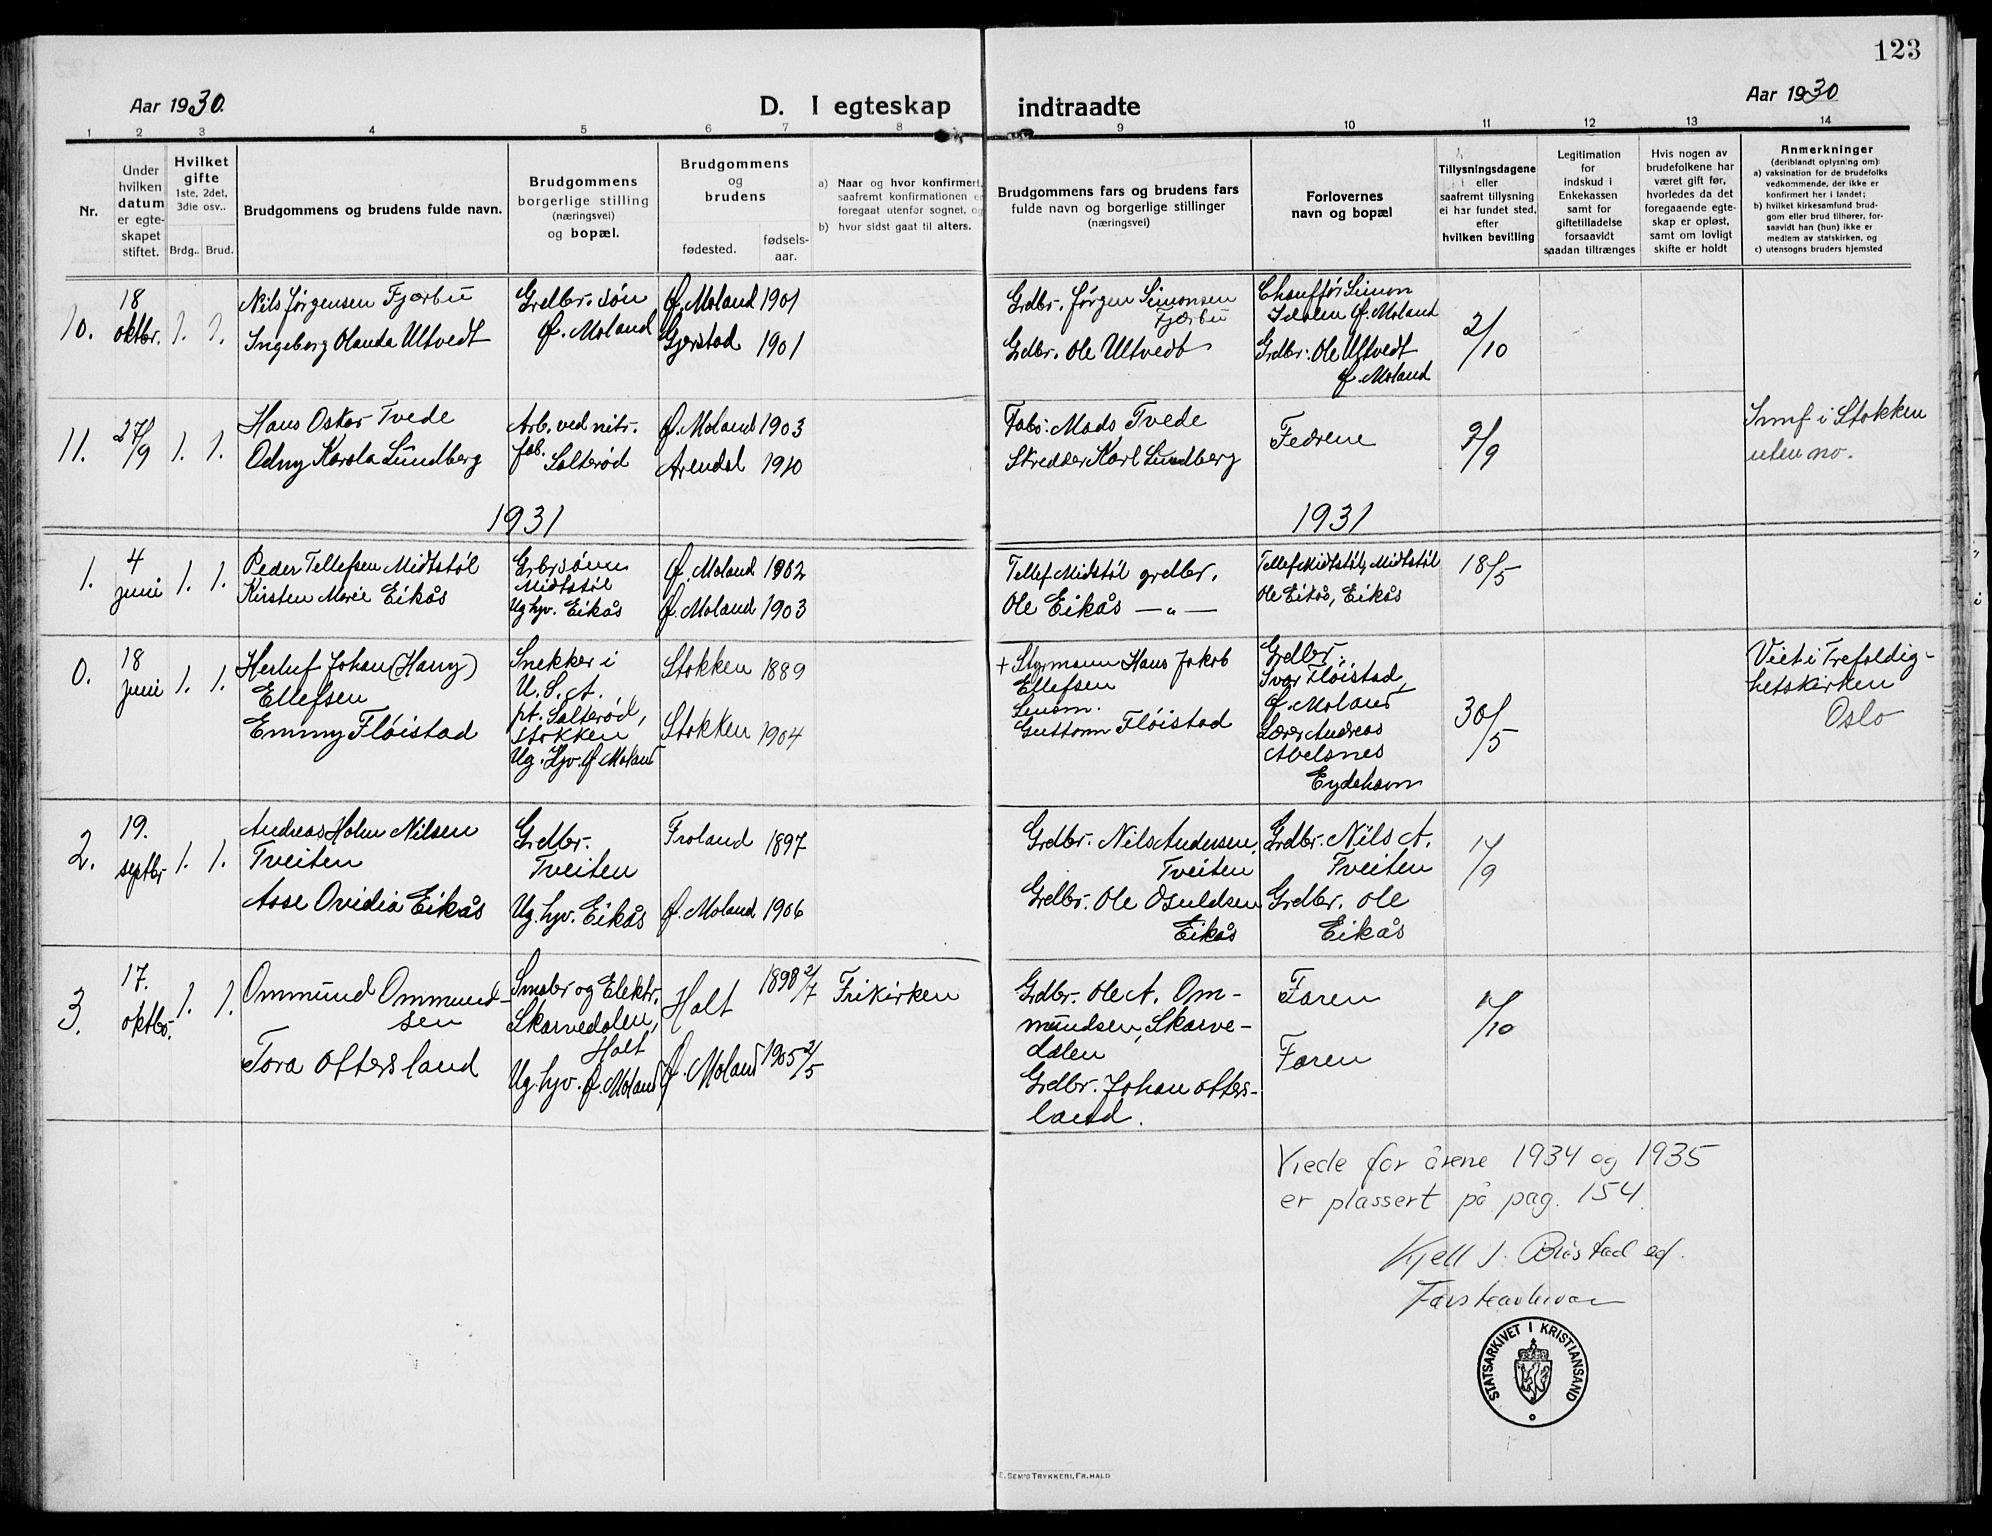 123
Aar 1930.
D. I egteskap indtraadte
Aar 1930
1 2 3 4 5 6 7 8 9 10 11 12 13 14
Nr.
Under hvilken datum er egteskapet stiftet.
Hvilket gifte
1ste, 2det, 3die osv..
Brdg.. Brud.
Brudgommens og brudens fulde navn.
Brudgommens borgerlige stilling
(næringsvei)
og bopæl.
Brudgommens og brudens
fødested.
fødselsaar.
a) Naar og hvor konfirmert,
saafremt konfirmationen er
foregaat utenfor sognet, og
b) hvor sidst gaat til alters.
Brudgommens fars og brudens fars
fulde navn og borgerlige stillinger
(næringsvei)
Forlovernes
navn og bopæl
Tillysningsdagene
eller
saafremt tillysning
ei har fundet sted,
efter
hvilken bevilling
Legitimation
for
indskud i
Enkekassen
samt for
giftetilladelse
forsaavidt
saadan tiltrænges
Hvis nogen av
brudefolkene har
været gift før,
hvorledes da det
foregaaende egte-
skap er opløst,
samt om lovligt
skifte er holdt
Anmerkninger
(deriblandt oplysning om):
a) vaksination for de brudefolks
vedkommende, der ikke er
konfirmert her i landet;
b) hvilket kirkesamfund brud-
gom eller brud tilhører, for-
saavidt han (hun) ikke er
medlem av statskirken, og
c) utensogns bruders hjemsted
10.
18
oktbr.
1. 1.
Nils Jørgensen Fjærbu
Ingeborg Olanda Ultvedt
Grdbr. søn
Ø. Moland
Ø. Moland 1901
Gjerstad 1901
Grdbr. Jørgen Simonsen
Fjærbu
Grdbr. Ole Ultvedt
Chauffør Simon
Ø. Moland
Grdbr. Ole Ultvedt
Ø. Moland
2/10
11.
27/9
1. 1.
Hans Oskar Tvede
Odny Karola Lundberg
Arb. ved nitr.
fab. Salterød
Ø. Moland 1903
Arendal 1910
Fabr. Mads Tvede
Skredder Karl Lundberg
Fedrene
9/9
Innf i Stokken
uten no.
1931
1931
1.
4
juni
1. 1.
Peder Tellefsen Midtstøl
Kirsten Marie Eikås
Grbrsønn
Midtstøl
Ug. hjv. Eikås
Ø. Moland 1902
Ø. Moland 1903
Tellef Midstøl grdbr.
Ole Eikås — " —
Tellef Midtstøl, Midtstøl
Ole Eikås, Eikås
18/5
0.
18
juni
1. 1.
Herluf Johan (Harry)
Ellefsen
Emmy Fløistad
Snekker i
U. S. A.
pt. Salterød,
Stokken
Ug. Hjv. Ø. Moland
Stokken 1889
Stokken 1904
+ Styrmann Hans Jakob
Ellefsen
Guttorm Fløistad
Grdbr.
Ivar Fløistad,
Ø. Moland
Lærer Andreas
Abelsnes
Eydehavn
30/5
Viet i Trefoldig-
hetskirken
Oslo
2.
19.
septbr
1. 1.
Andreas Holm Nilsen
Tveiten
Asse Ovidia Eikås
Grdbr.
Tveiten
Ug. hjv. Eikås
Froland 1897
Ø. Moland 1906
Grdbr. Nils Andersen
Tveiten
Grdbr. Ole Osuldsen
Eikås
Grdbr. Nils A.
Tveiten
Grdbr. Ole
Eikås
1/9
3.
17.
oktbr.
1. 1.
Ommund Ommund-
sen
Tora Ottersland
Småbr og Elektr.
Skarvedalen,
Holt
Ug. hjv. Ø. Moland
Holt 1898 2/7
Ø. Moland 1905 2/5
Frikirken
Grdbr. Ole A. Om-
mundsen, Skarve-
dalen
Grdbr. Johan Otters-
land.
Faren
Faren
1/10
Viede for årene 1934 og 1935
er plassert på pag. 154.
Kjell J.
Førstearkivar
STATSARKIVET I KRISTIANSAND
E. SEM'S TRYKKERI, FR.HALD